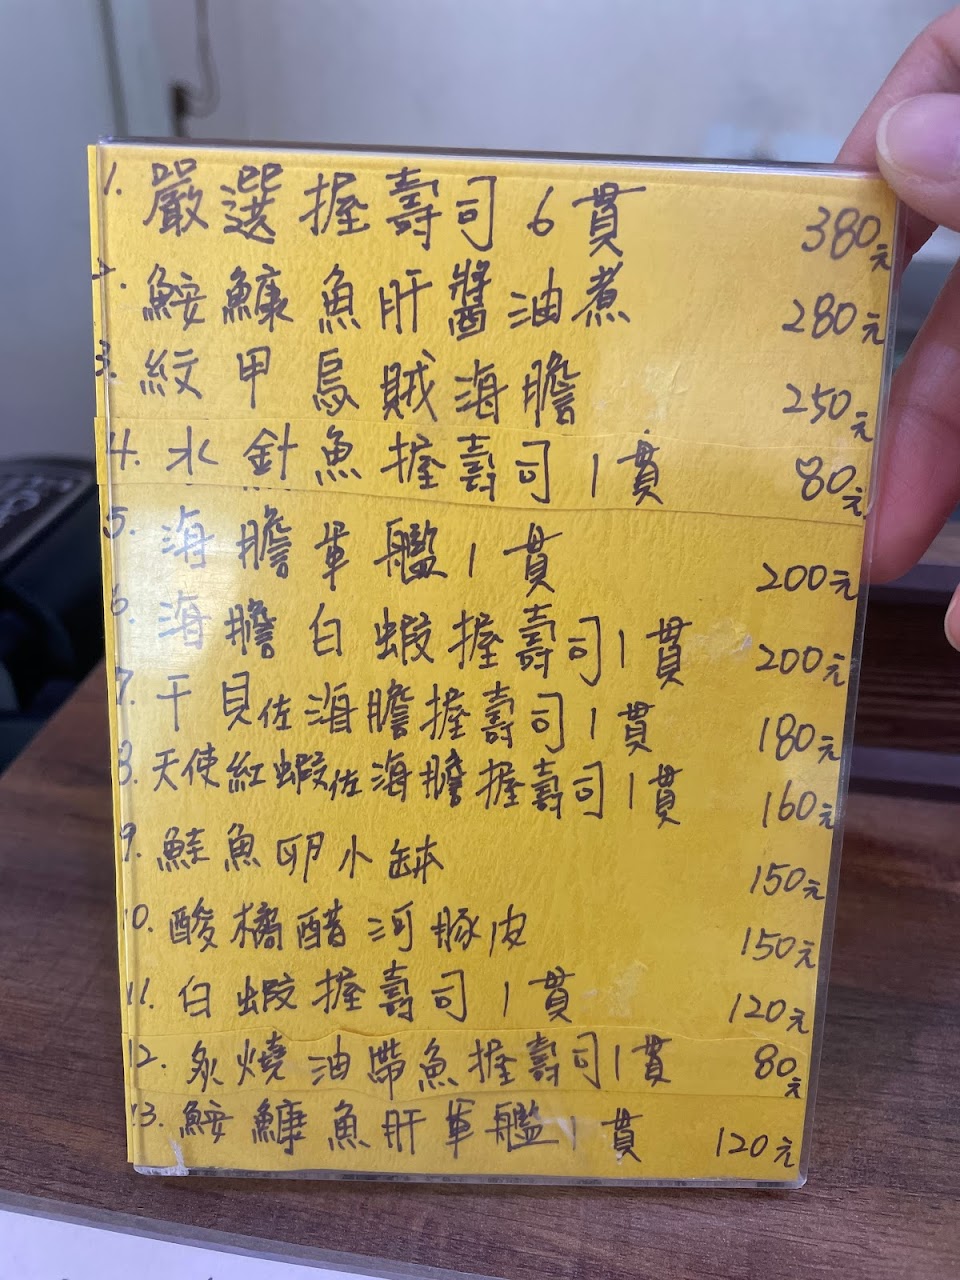 1. 嚴選握壽司6貫 380元
2. 鮟鱇魚肝醬油煮 280元
3. 紋甲烏賊海膽 250元
4. 水針魚握壽司1貫 80元
5. 海膽軍艦1貫 200元
6. 海膽白蝦握壽司1貫 200元
7. 干貝佐海膽握壽司1貫 180元
8. 天使紅蝦佐海膽握壽司1貫 160元
9. 鮭魚卵小缽 150元
10. 酸橘醋河豚皮 150元
11. 白蝦握壽司1貫 120元
12. 炙燒油帶魚握壽司1貫 80元
13. 鮟鱇魚肝軍艦1貫 120元